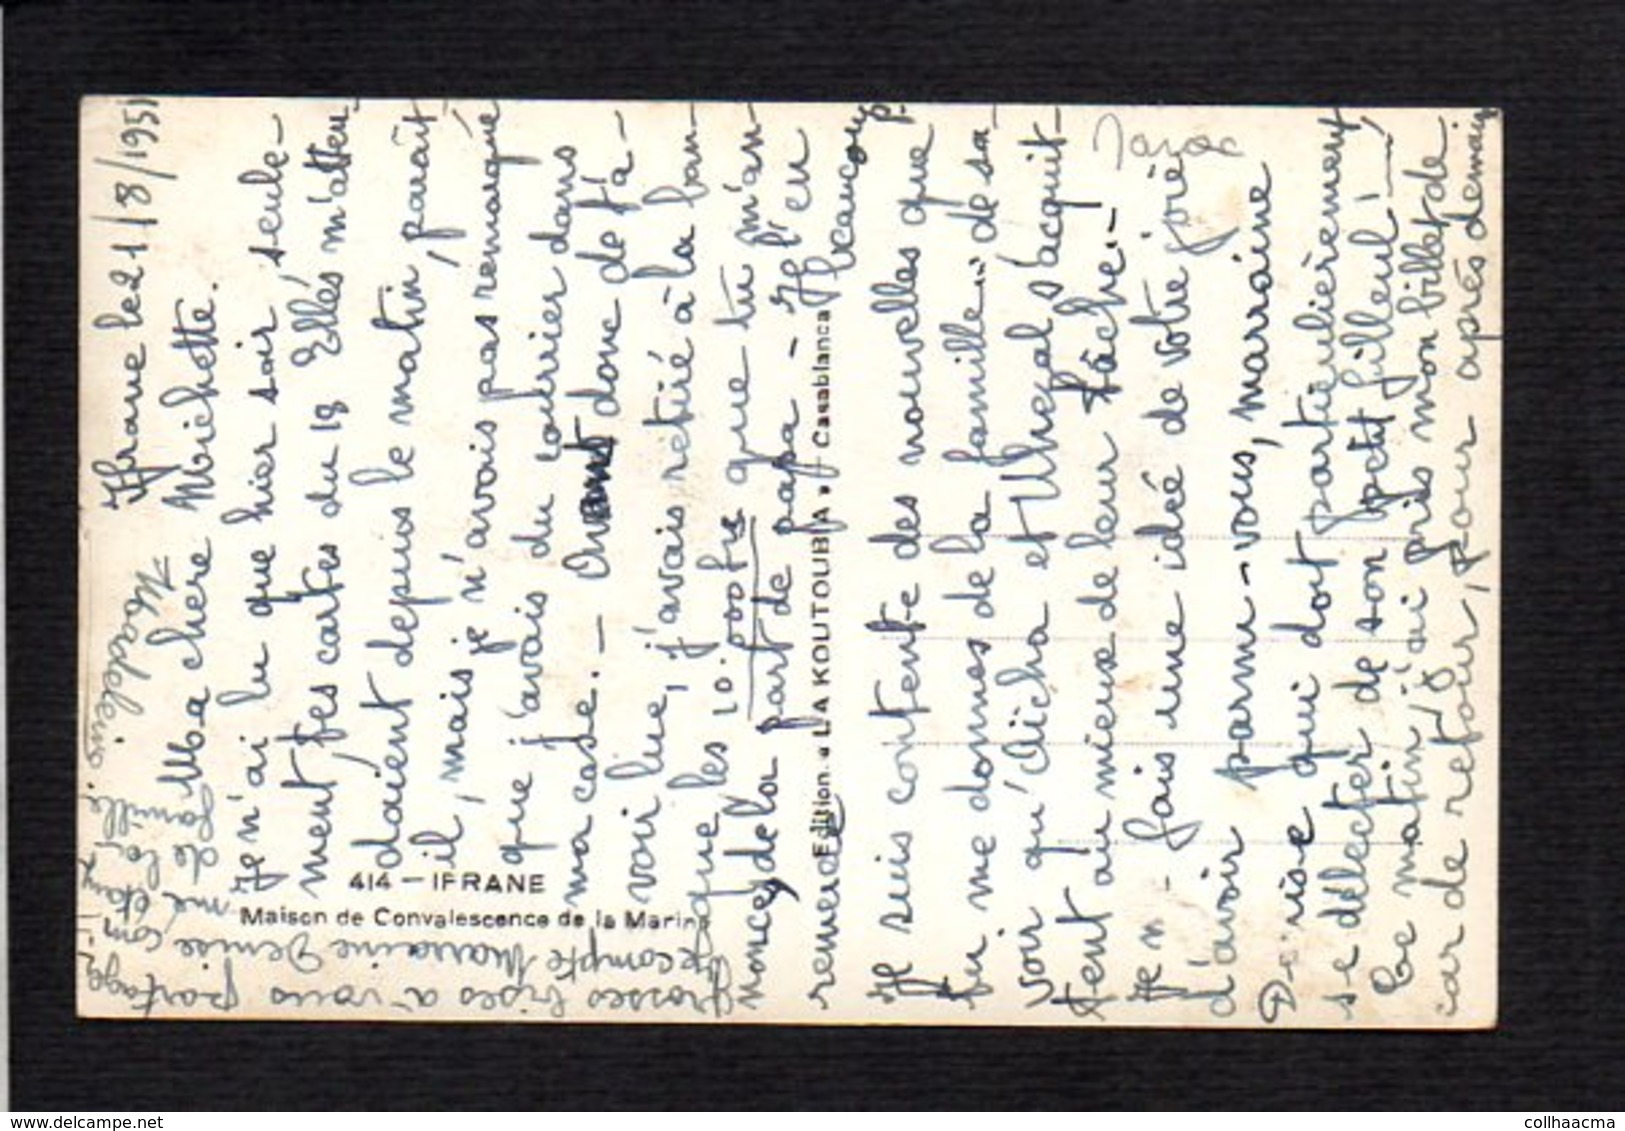 Ifrane le 21/8/1951
Ma chère Michette.
Je n'ai lu que hier soir, seule-
ment, tes cartes du 18 Elles m'atten-
daient depuis le matin, paraît
il, mais je n'avais pas remarqué
que j'avais du courrier dans
ma case. - donc de t'a-
voir lue, j'avais retiré à la ban-
que les 10.000 frs que tu m'an-
nonces de la part de papa - Je l'en
remercie beaucoup
Je suis contente des nouvelles que
tu me donnes de la famille et de sa-
voir qu'Aïcha et s'acquit-
tent au mieux de leur tâche. -
Je m'en fais une idée de votre joie
d'avoir parmi-vous, marraine
Denise qui doit particulièrement
se délecter de son petit filleul! -
Ce matin j'ai pris mon billet de
car de retour, pour après demain
Grosses bises à vous partager
Je compte Marraine Denise com
me étant
de la famille,
Madeleine.
Maroc
414 - IFRANE
Maison de Convalescence de la Marine
Edition. « LA KOUTOUBIA » Casablanca
delcampe.net
collhaacma